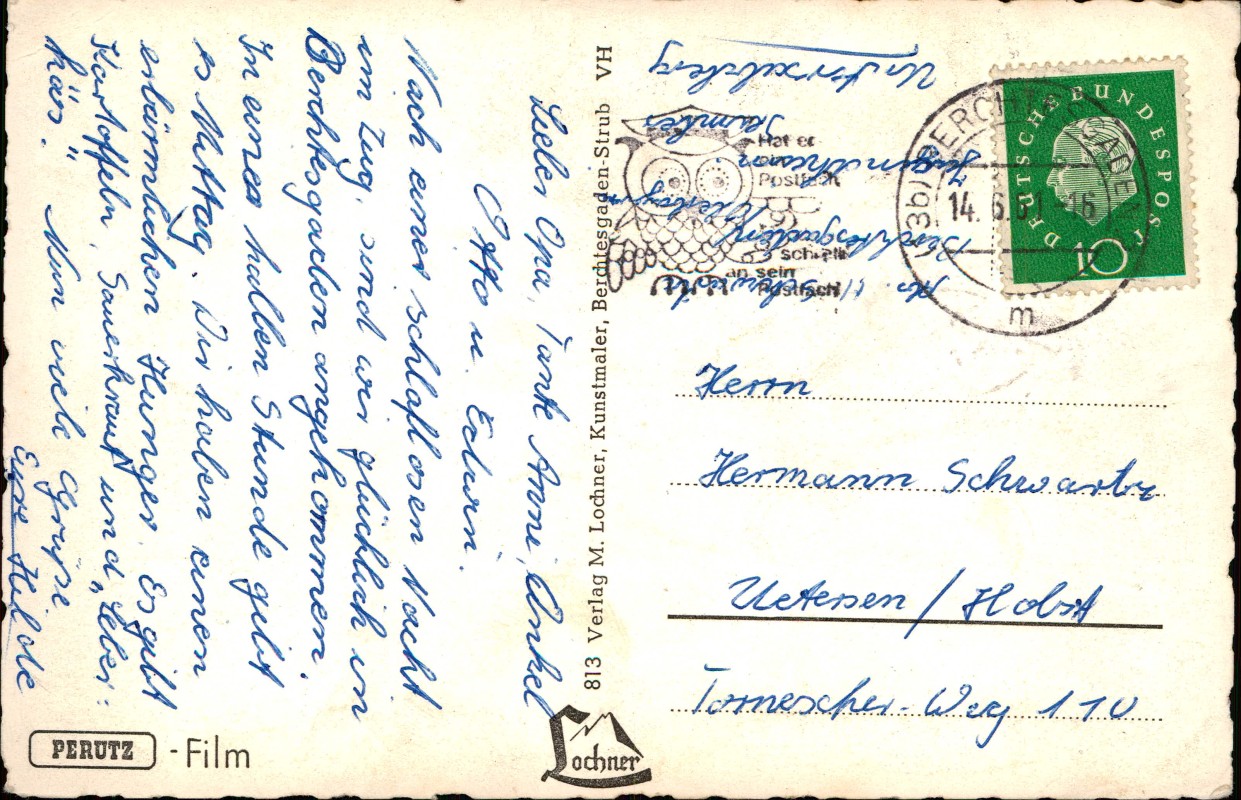 Lieber Opa, Tante Anni, Onkel
Otto u. Edurn.
Nach einer schlaflosen Nacht
im Zug, sind wir glücklich in
Berchtesgaden angekommen.
In einer halben Stunde gibt
es Mittag. Wir haben einen
erbärmlichen Hunger. Es gibt
Kartoffeln, Sauerkraut und „Leber-
käs." Nun viele Grüße
Eure Hilde
PERUTZ -Film
813 Verlag M. Lochner, Kunstmaler, Berchtesgaden-Strub VH
Lochner
H. Schwartz
Berchtesgaden
Jugendheim
Untersalzberg
Hat er
Postfach
schreib
an sein
Postfach
(13b) BERCHTESGADEN
14.6.61-16
m
DEUTSCHE BUNDESPOST
10
Herrn
Hermann Schwartz
Uetersen / Holst
Tornescher-Weg 110